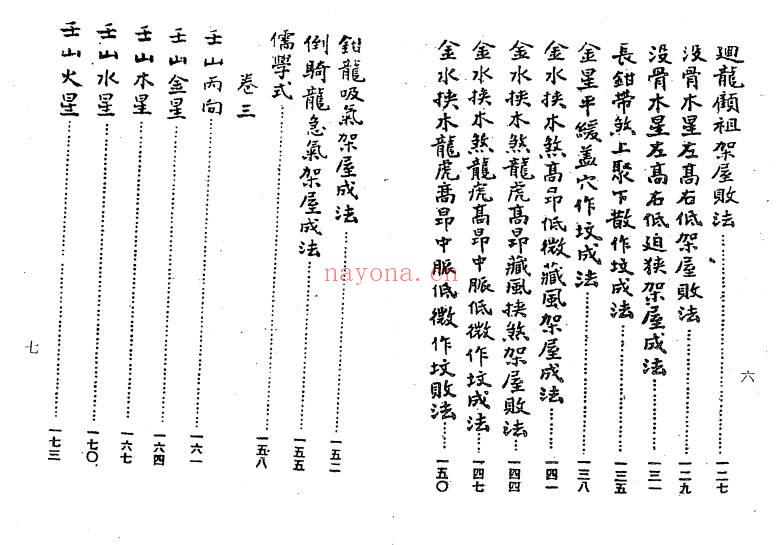 廻龍顧祖架屋敗法⋯⋯一二七
没骨木星左高右低架屋敗法⋯⋯一二九
没骨木星左高右低迫狹架屋成法⋯⋯一三一
長鉗帶煞上聚下散作坟成法⋯⋯一三五
金星平緩盖穴作坟成法⋯⋯一三八
金水挾木煞高昻低微藏風架屋成法⋯⋯一四一
金水挾木煞龍虎高昻藏風挾煞架屋敗法⋯⋯一四四
金水挾木煞龍虎高昻中脈低微作坟成法⋯⋯一四七
金水挾木龍虎高昻中脈低微作坟敗法⋯⋯一五〇
六
鉗龍吸氣架屋成法⋯⋯一五二
倒騎龍急氣架屋成法⋯⋯一五五
儒學式⋯⋯一五八
卷三
壬山丙向⋯⋯一六一
壬山金星⋯⋯一六四
壬山木星⋯⋯一六七
壬山水星⋯⋯一七〇
壬山火星⋯⋯一七三
七
nayona.cn